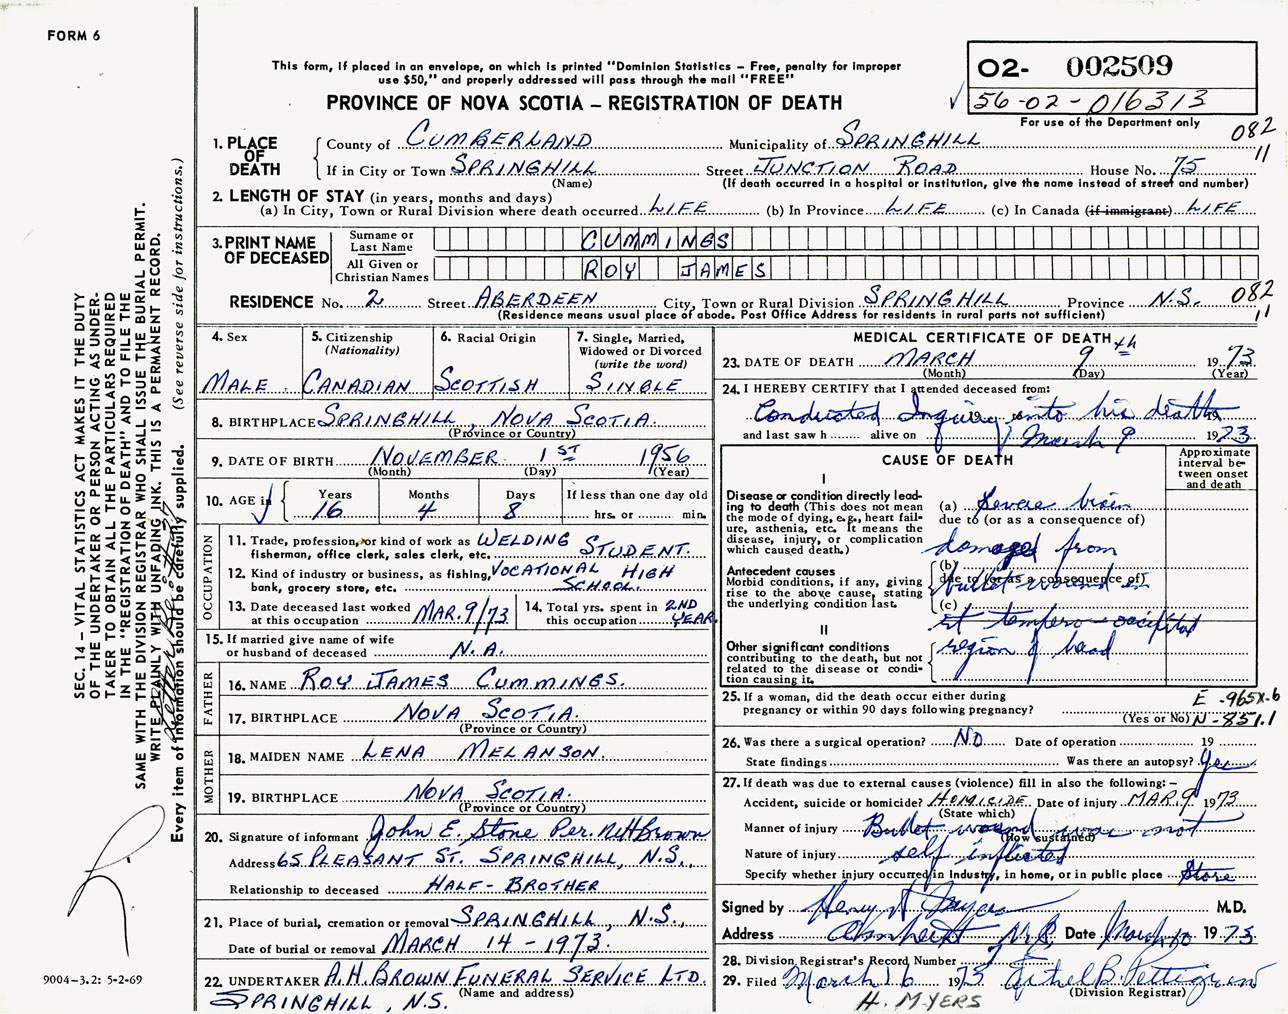 FORM 6
This form, if placed in an envelope, on which is printed "Dominion Statistics – Free, penalty for improper
use $50," and properly addressed will pass through the mail "FREE"
PROVINCE OF NOVA SCOTIA – REGISTRATION OF DEATH
02- 002509
✓ 56-02-016313
For use of the Department only
082
11
1. PLACE OF DEATH
County of CUMBERLAND Municipality of SPRINGHILL
If in City or Town SPRINGHILL Street JUNCTION ROAD House No. 75
(Name) (If death occurred in a hospital or institution, give the name instead of street and number)
2. LENGTH OF STAY (in years, months and days)
(a) In City, Town or Rural Division where death occurred LIFE (b) In Province LIFE (c) In Canada (if immigrant) LIFE
3. PRINT NAME OF DECEASED
Surname or Last Name CUMMINGS
All Given or Christian Names ROY JAMES
RESIDENCE No. 2 Street ABERDEEN City, Town or Rural Division SPRINGHILL Province N.S. 082
(Residence means usual place of abode. Post Office Address for residents in rural parts not sufficient) 11
4. Sex
MALE
5. Citizenship
(Nationality)
CANADIAN
6. Racial Origin
SCOTTISH
7. Single, Married,
Widowed or Divorced
(write the word)
SINGLE
8. BIRTHPLACE SPRINGHILL, NOVA SCOTIA.
(Province or Country)
9. DATE OF BIRTH NOVEMBER 1ST 1956
(Month) (Day) (Year)
10. AGE in
Years Months Days If less than one day old
16 4 8 hrs. or min.
OCCUPATION
11. Trade, profession, or kind of work as WELDING
fisherman, office clerk, sales clerk, etc. STUDENT.
12. Kind of industry or business, as fishing, VOCATIONAL HIGH
bank, grocery store, etc. SCHOOL.
13. Date deceased last worked
at this occupation MAR. 9/73
14. Total yrs. spent in 2ND
this occupation YEAR.
15. If married give name of wife
or husband of deceased N.A.
FATHER
16. NAME ROY JAMES CUMMINGS.
17. BIRTHPLACE NOVA SCOTIA.
(Province or Country)
MOTHER
18. MAIDEN NAME LENA MELANSON.
19. BIRTHPLACE NOVA SCOTIA.
(Province or Country)
20. Signature of informant John E. Stone Per. N H Brown
Address 65 PLEASANT ST. SPRINGHILL, N.S.,
Relationship to deceased HALF-BROTHER
21. Place of burial, cremation or removal SPRINGHILL, N.S.,
Date of burial or removal MARCH 14-1973.
22. UNDERTAKER A.H. BROWN FUNERAL SERVICE LTD.
(Name and address)
SPRINGHILL, N.S.
MEDICAL CERTIFICATE OF DEATH
23. DATE OF DEATH MARCH 9th 1973
(Month) (Day) (Year)
24. I HEREBY CERTIFY that I attended deceased from:
Conducted Inquiry into his death
19 to 19
and last saw h alive on March 9 1973
CAUSE OF DEATH
Approximate interval between onset and death
I
Disease or condition directly leading to death (This does not mean the mode of dying, e.g., heart failure, asthenia, etc. It means the disease, injury, or complication which caused death.)
(a) Severe brain
due to (or as a consequence of)
damage from
Antecedent causes
Morbid conditions, if any, giving rise to the above cause, stating the underlying condition last.
(b)
due to (or as a consequence of)
bullet wound in
(c)
rt tempero-occipital
II
Other significant conditions
contributing to the death, but not related to the disease or condition causing it.
region of head
25. If a woman, did the death occur either during
pregnancy or within 90 days following pregnancy?
(Yes or No)
E-965X-6
N-851.1
26. Was there a surgical operation? NO Date of operation 19
State findings Was there an autopsy? Yes
27. If death was due to external causes (violence) fill in also the following:–
Accident, suicide or homicide? HOMICIDE Date of injury MAR 9 1973
(State which)
Manner of injury Bullet wound was not
(How sustained)
Nature of injury self inflicted
Specify whether injury occurred in industry, in home, or in public place Store
Signed by Henry Myers M.D.
Address Amherst N.S. Date March 10 1973
28. Division Registrar's Record Number
29. Filed March 16 1973 Ethel B. Pettigrew
(Division Registrar)
H. MYERS
SEC. 14 – VITAL STATISTICS ACT MAKES IT THE DUTY
OF THE UNDERTAKER OR PERSON ACTING AS UNDER-
TAKER TO OBTAIN ALL THE PARTICULARS REQUIRED
IN THE "REGISTRATION OF DEATH" AND TO FILE THE
SAME WITH THE DIVISION REGISTRAR WHO SHALL ISSUE THE BURIAL PERMIT.
WRITE PLAINLY WITH UNFADING INK. THIS IS A PERMANENT RECORD.
Every item of information should be carefully supplied. (See reverse side for instructions.)
9004-3.2: 5-2-69